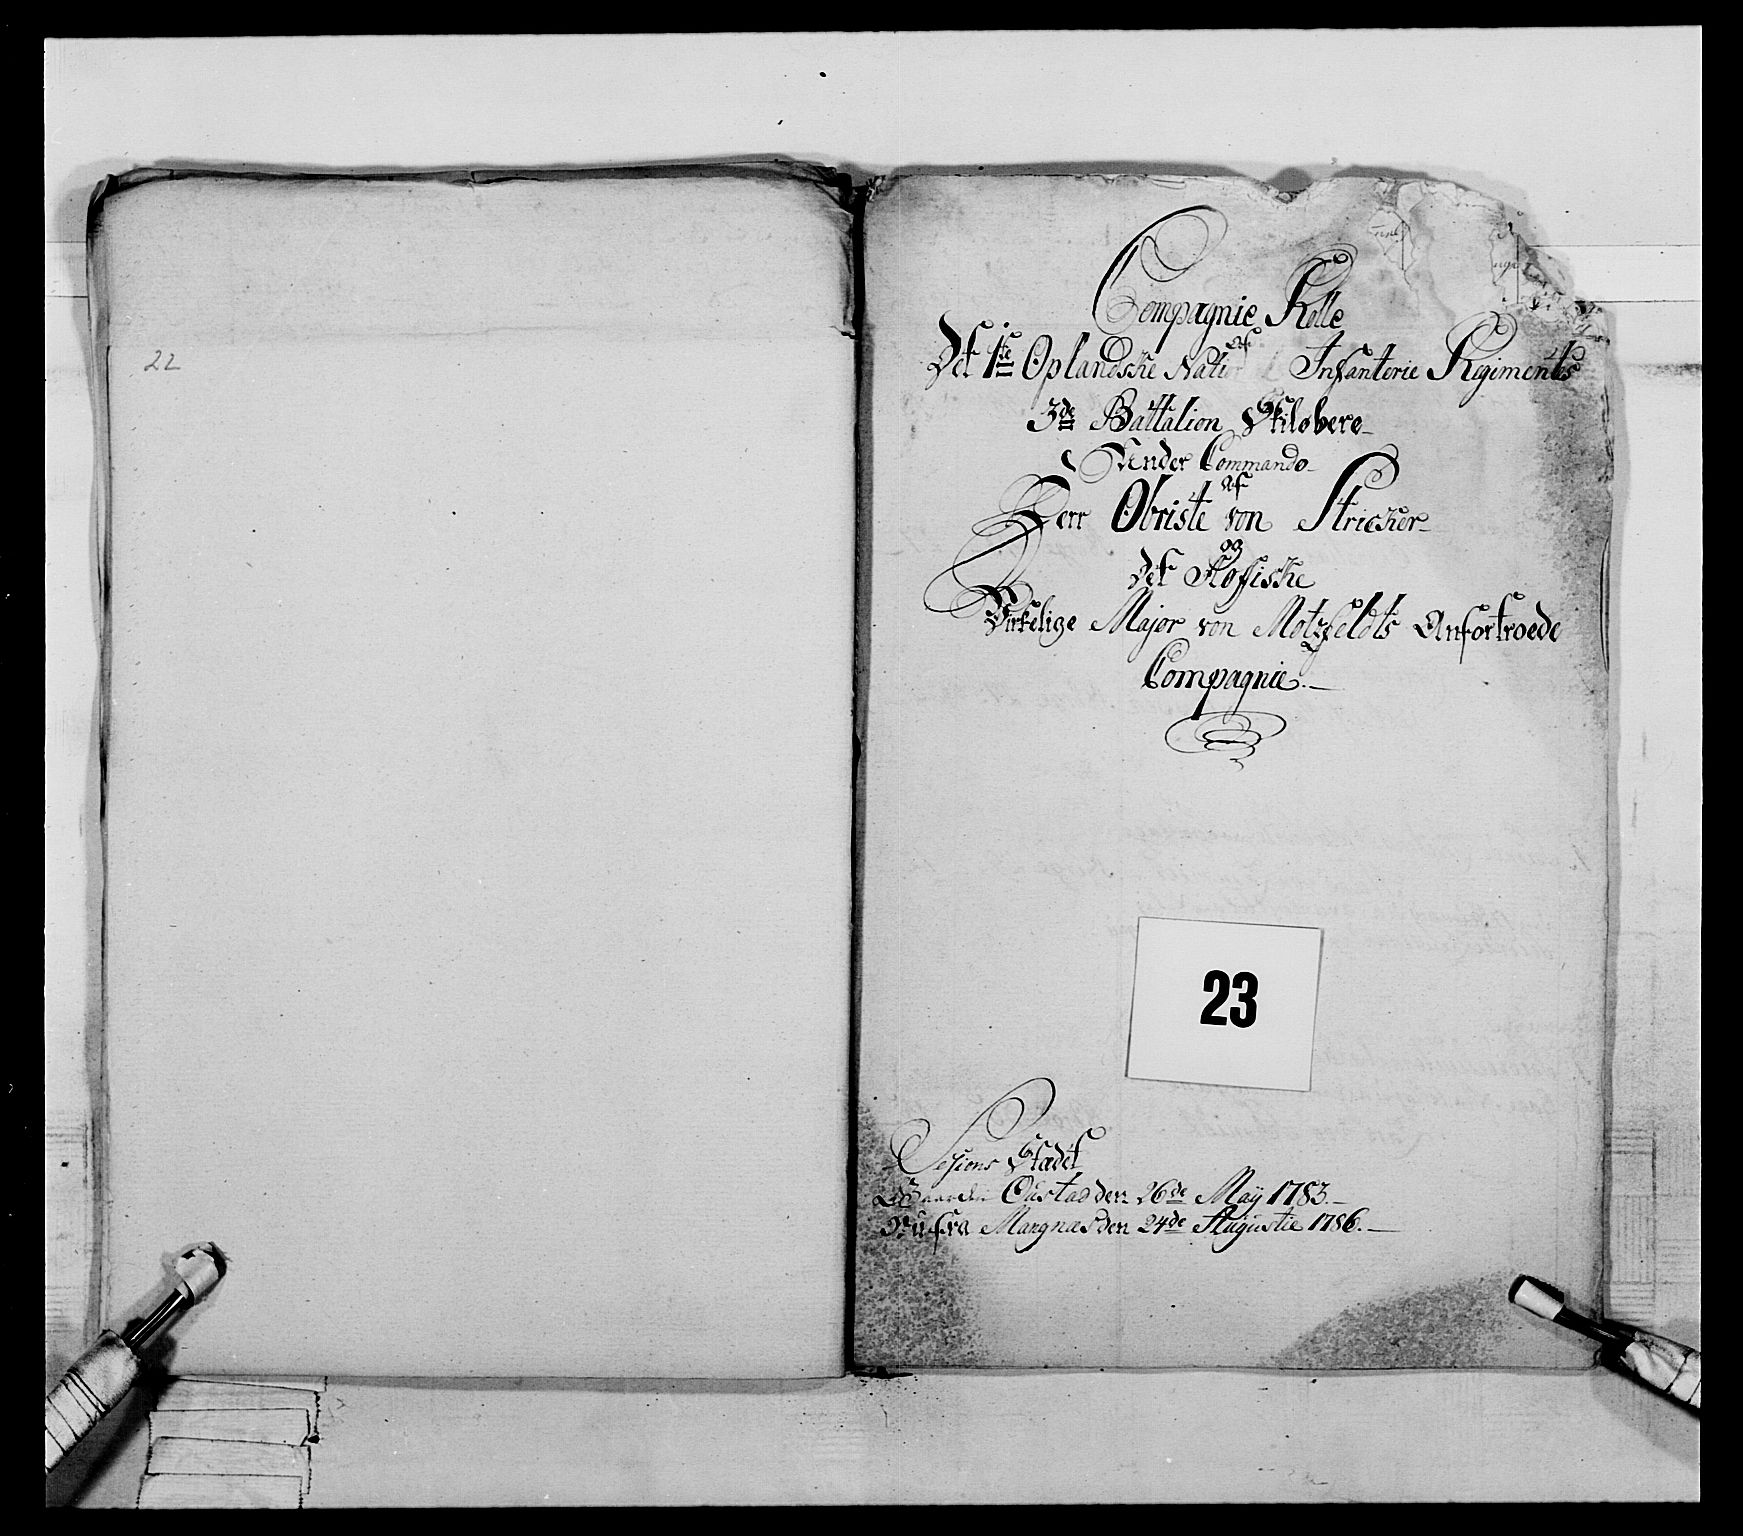 22
Compagnie Rolle
Af
Det 1te Oplandske Natio Infanterie Regiments
3de Battalion Skiløbere
Under Commando
Af
Herr Obriste von Stricker
og
Det Roffiske
Virkelige Major von Motzfeldts Anfortroede
Compagnie.
23
Sesions Stædet
Gaarden Oustad den 26de May 1783.
Mangnæs den 24de Augustie 1786.